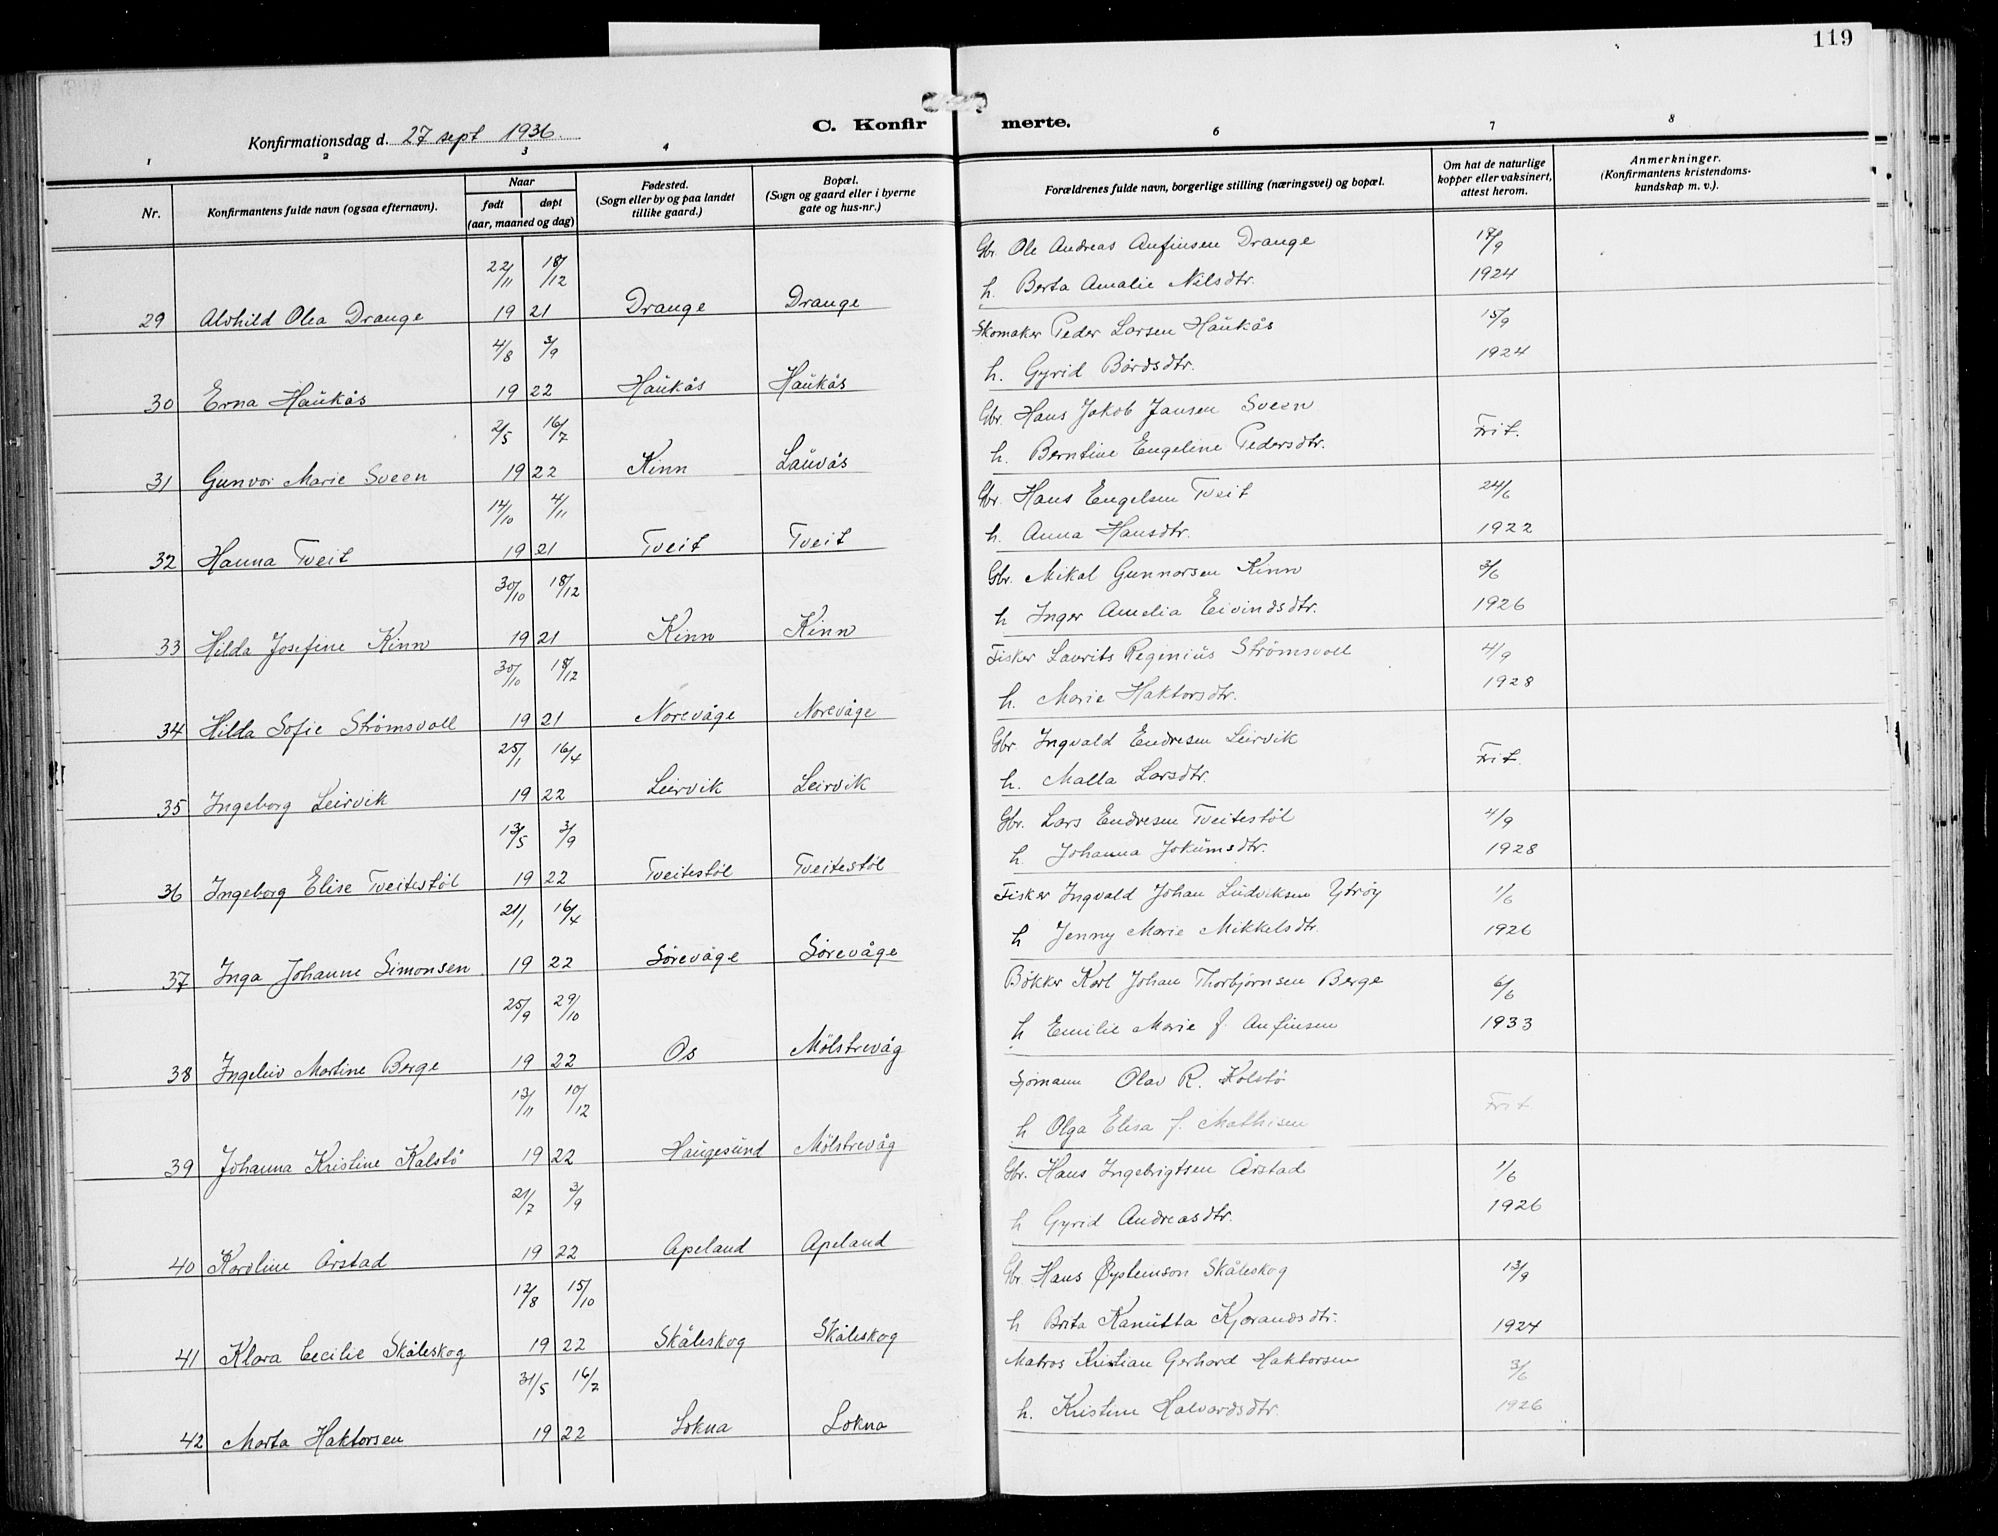 119
C. Konfirmerte.
Konfirmationsdag d. 27 sept 1936.
1 2 3 4 6 7 8
Nr. Konfirmantens fulde navn (ogsaa efternavn). Naar født døpt (aar, maaned og dag) Fødested. (Sogn eller by og paa landet tillike gaard.) Bopæl. (Sogn og gaard eller i byerne gate og hus-nr.) Forældrenes fulde navn, borgerlige stilling (næringsvei) og bopæl. Om hat de naturlige kopper eller vaksinert, attest herom. Anmerkninger. (Konfirmantens kristendomskundskap m. v.).
22/11 18/12 Gbr. Ole Andreas Anfinsen Drange 18/9
29 Alvhild Olea Drange 19 21 Drange Drange h. Berta Amalie Nilsdtr. 1924
4/8 3/9 Skomaker Peder Larsen Haukås 15/9
30 Erna Haukås 19 22 Haukås Haukås h. Gyrid Bårdsdtr. 1924
2/5 16/7 Gbr. Hans Jakob Jansen Sveen Frit.
31 Gunvor Marie Sveen 19 22 Kinn Lauvås h. Berntine Engeline Pedersdtr.
14/10 4/11 Gbr. Hans Engelsen Tveit 24/6
32 Hanna Tveit 19 21 Tveit Tveit h. Anna Hansdtr. 1922
30/10 18/12 Gbr. Mikal Gunnarsen Kinn 3/6
33 Hilda Josefine Kinn 19 21 Kinn Kinn h Inger Amelia Eivindsdtr. 1926
30/10 18/12 Fisker Laurits Reginius Strømsvoll 4/9
34 Hilda Sofie Strømsvoll 19 21 Norevåge Norevåge h. Marie Haktorsdtr. 1928
25/1 16/4 Gbr. Ingvald Endresen Leirvik Frit.
35 Ingeborg Leirvik 19 22 Leirvik Leirvik h. Malla Larsdtr.
13/5 3/9 Gbr. Lars Endresen Tveitestøl 4/9
36 Ingeborg Elise Tveitestøl 19 22 Tveitestøl Tveitestøl h. Johanna Jokumsdtr. 1928
21/1 16/4 Fisker Ingvald Johan Ludviksen Ytrøy 1/6
37 Inga Johanne Simonsen 19 22 Sørevåge Sørevåge h Jenny Marie Mikkelsdtr. 1926
25/9 29/10 Bøkker Karl Johan Thorbjørnsen Berge 6/6
38 Ingeleiv Martine Berge 19 22 Os Mølstrevåg h Emilie Marie f. Anfinsen 1933
13/11 10/12 Sjømann Olav R. Kolstø Frit
39 Johanna Kristine Kalstø 19 22 Haugesund Mølstrevåg h Olga Elisa f. Mathisen
21/7 3/9 Gbr. Hans Ingebrigtsen Årstad 1/6
40 Karoline Årstad 19 22 Apeland Apeland h Gyrid Andreasdtr. 1926
12/8 15/10 Gbr. Hans Øystemson Skåleskog 13/9
41 Klara Cecilie Skåleskog 19 22 Skåleskog Skåleskog h Brita Kanutta Kjørandsdtr. 1924
31/5 16/7 Matros Kristian Gerhard Haktorsen 3/6
42 Marta Haktorsen 19 22 Lokna Lokna h. Kristine Halvardsdtr. 1926